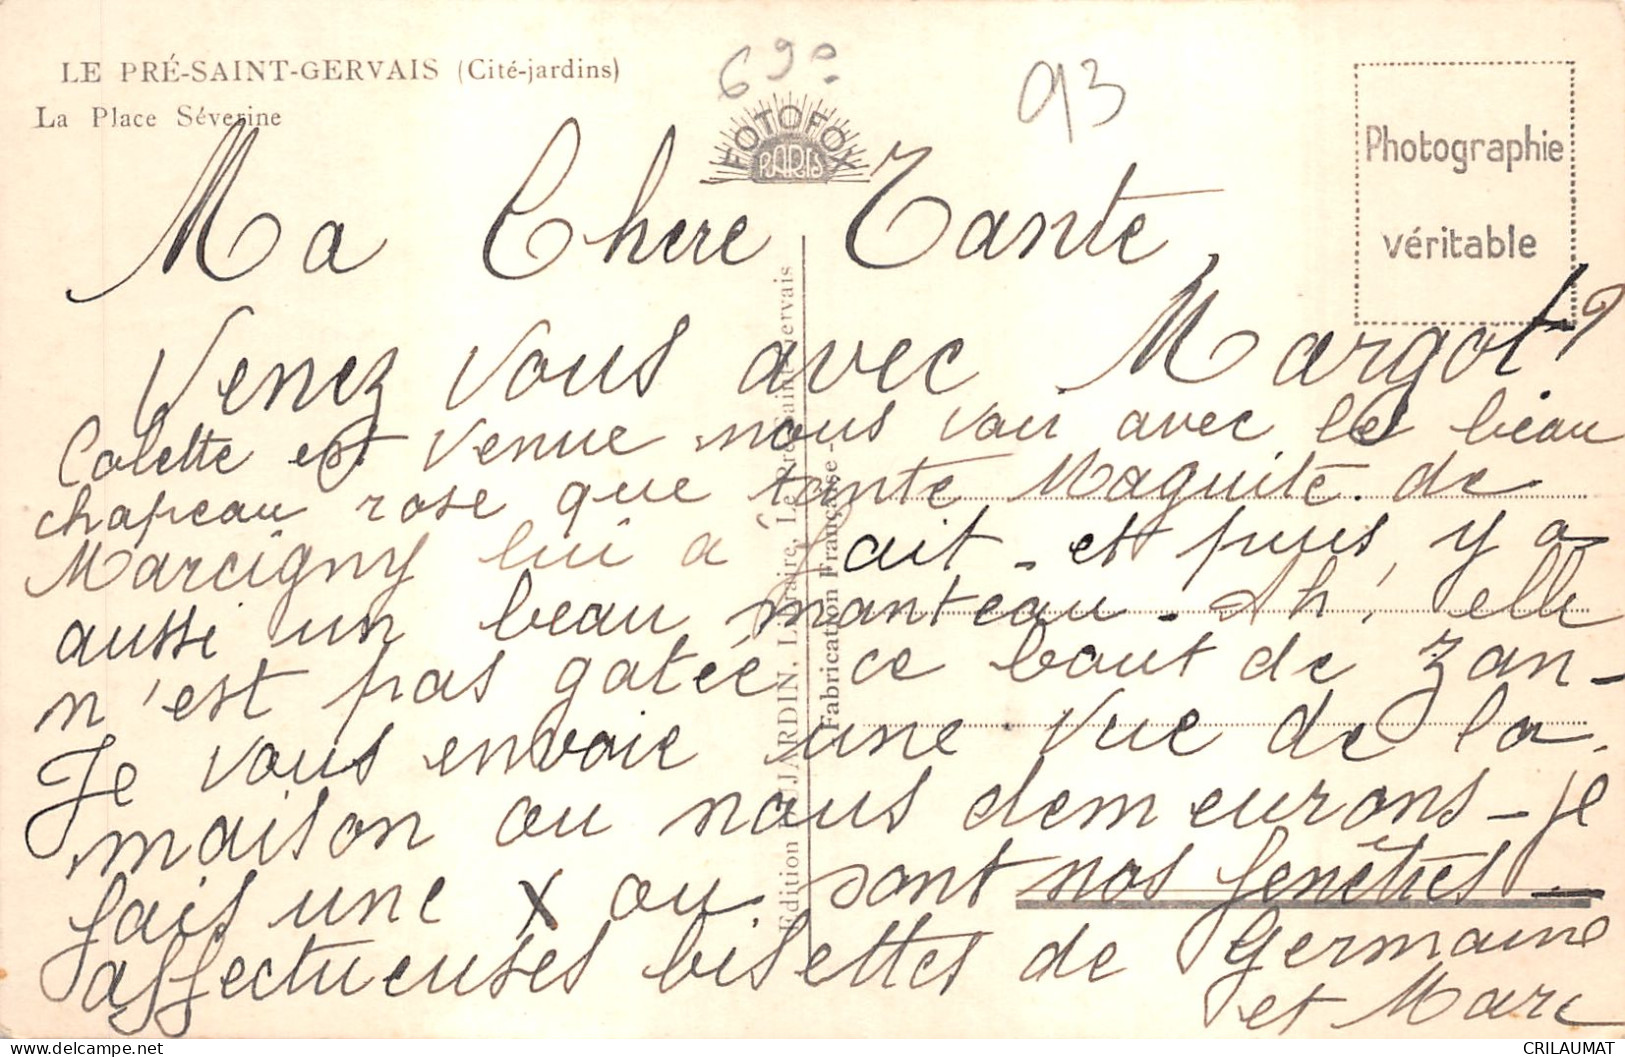 LE PRÉ-SAINT-GERVAIS (Cité-jardins)
La Place Séverine
69e
93
FOTOFOX
PARIS
Photographie
véritable
Ma Chere Tante,
Venez vous avec Margot?
Colette est venue nous voir avec le beau
chapeau rose que tante Maguite de
Marcigny lui a fait - et puis, y a
aussi un beau manteau - Ah! elle
n'est pas gatée ce bout de zan -
Je vous envoie une vue de la
maison ou nous demeurons - je
fais une x ou sont nos fenêtres -
affectueuses bisettes de Germaine
et Marc
Edition DUJARDIN, Libraire, Le Pré-Saint-Gervais
Fabrication Française
CRILAUMAT